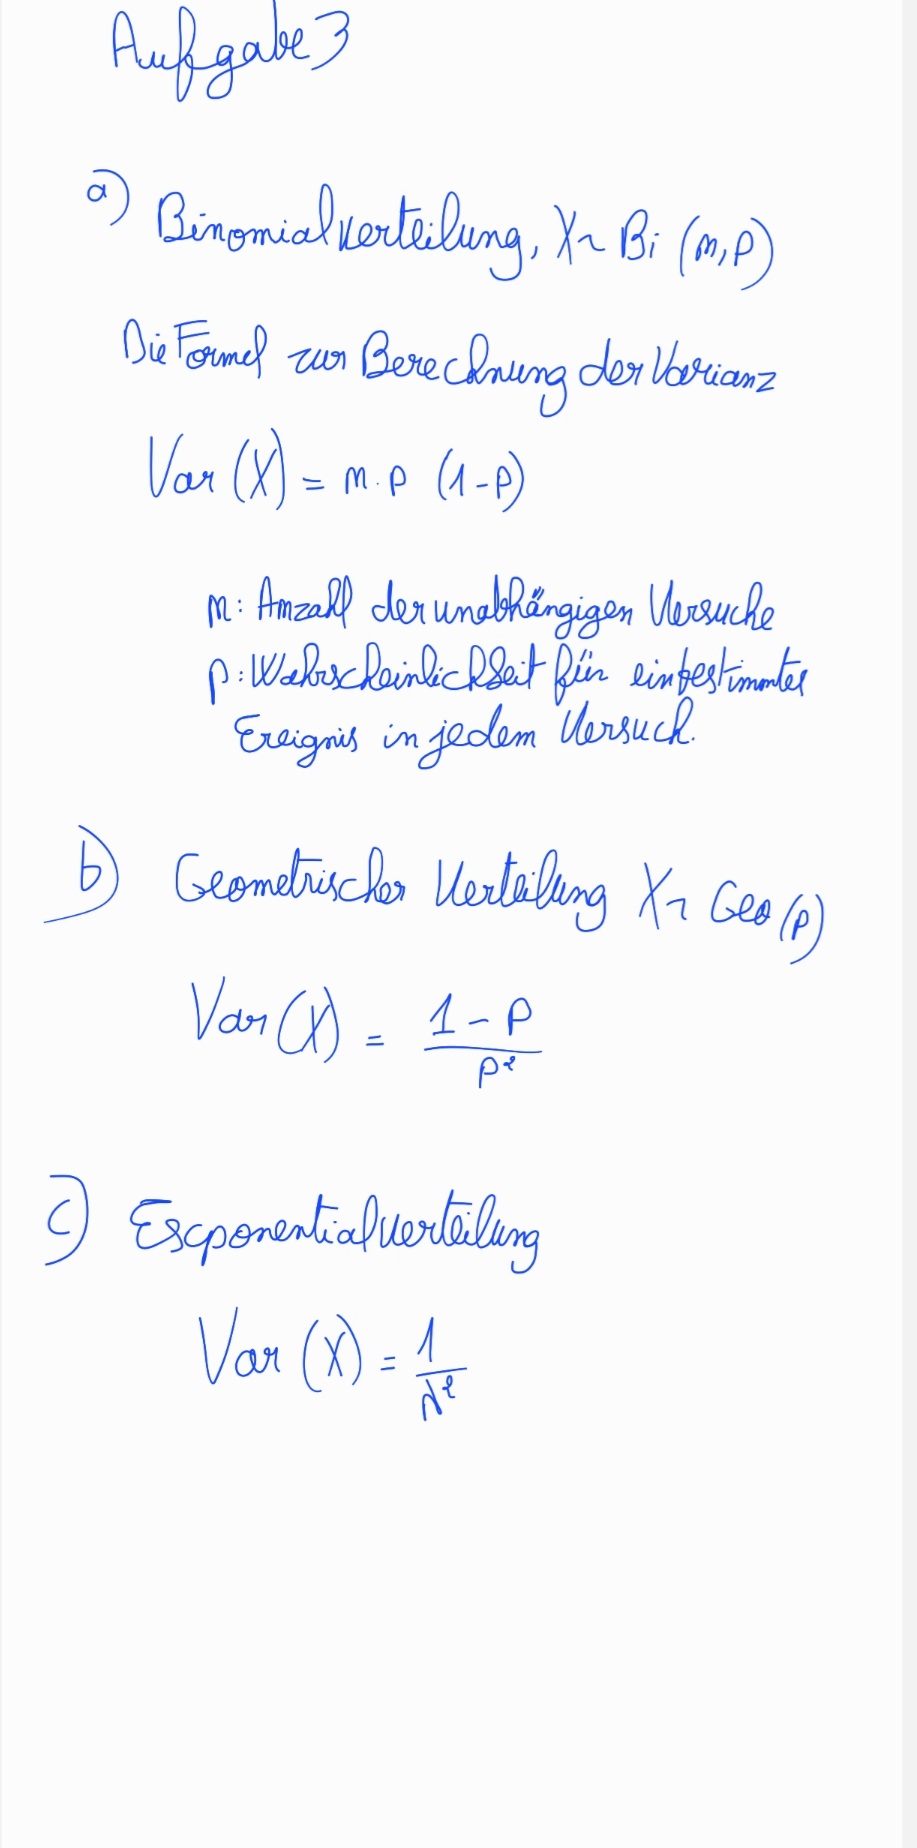 Aufgabe 3
a) Binomialverteilung, X~ Bi (n,p)
Die Formel zur Berechnung der Varianz
Var (X) = n·p (1-p)
n: Anzahl der unabhängigen Versuche
p: Wahrscheinlichkeit für ein bestimmtes
Ereignis in jedem Versuch.
b) Geometrischer Verteilung X~ Geo (p)
Var (X) = \frac{1-p}{p²}
c) Exponentialverteilung
Var (X) = \frac{1}{λ²}